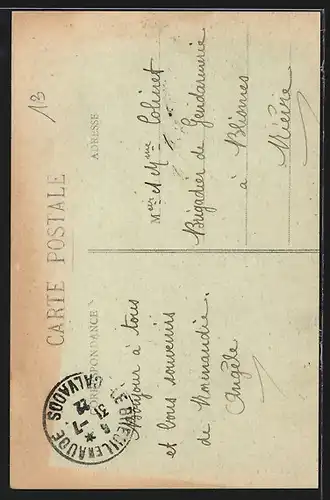 13
CARTE POSTALE
CORRESPONDANCE
ADRESSE
Bonjour à tous
et bons souvenirs
de Normandie.
Angèle
Meur et Mme Cohinet
Brigadier de Gendarmerie
à Blismes
Nièvre
BRETTEVILLE
6 * -7
31 12
CALVADOS